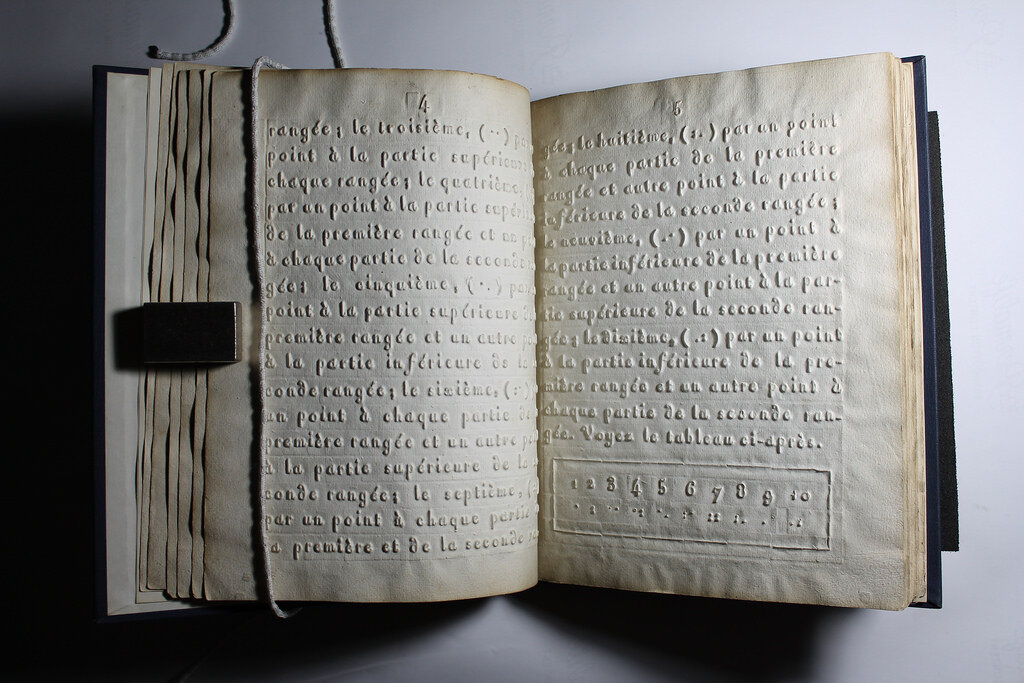 4
rangée; le troisième, (··) par
point à la partie supérieure
chaque rangée; le quatrième,
par un point à la partie supé
de la première rangée et un
à chaque partie de la seconde
gée; le cinquième, (·.) par
point à la partie supérieure
première rangée et un autre
à la partie inférieure de la
conde rangée; le sixième, (:·)
un point à chaque partie de
première rangée et un autre
à la partie supérieure de la
conde rangée; le septième, (
par un point à chaque partie
la première et de la seconde
5
gée; le huitième, (:.) par un point
à chaque partie de la première
rangée et autre point à la partie
inférieure de la seconde rangée;
le neuvième, (.·) par un point à
la partie inférieure de la première
rangée et un autre point à la par-
tie supérieure de la seconde ran-
gée; le dixième, (.:) par un point
à la partie inférieure de la pre-
mière rangée et un autre point à
chaque partie de la seconde ran-
gée. Voyez le tableau ci-après.
1 2 3 4 5 6 7 8 9 10
· : ·· ·: ·. :· :: :. .· .: